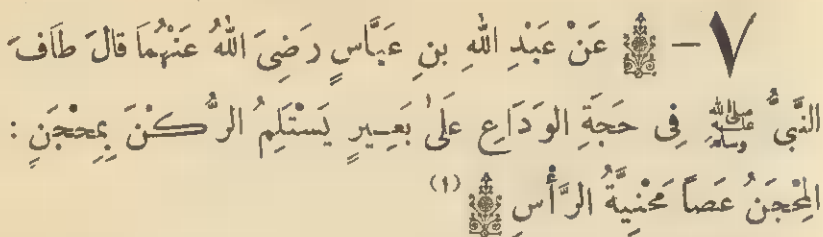 ٧ – عَنْ عَبْدِ اللهِ بنِ عَبَّاسٍ رَضِيَ اللهُ عَنْهُمَا قالَ طاَفَ
النَّبيُّ صلى الله عليه وسلم فِى حَجَةِ الوَدَاعِ عَلىٰ بَعِيرٍ يَسْتَلِمُ الرُّكْنَ بِمِحْجَنٍ :
المِحْجَنُ عَصاً مَحْنِيَّةُ الرَّأْسِ (١)